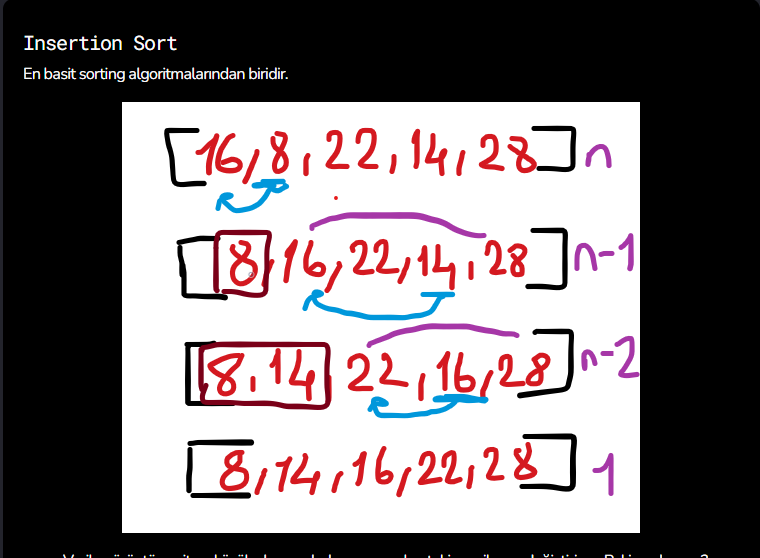 Insertion Sort
En basit sorting algoritmalarından biridir.
[16, 8, 22, 14, 28] n
[8, 16, 22, 14, 28] n-1
[8, 14, 22, 16, 28] n-2
[8, 14, 16, 22, 28] 1